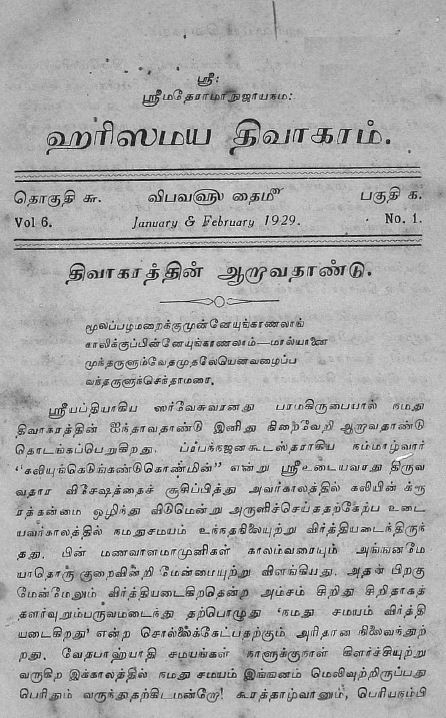 ஸ்ரீ:
ஸ்ரீமதேராமாநுஜாயநம:
ஹரிஸமய திவாகரம்.
தொகுதி ௬. விபவஞு தைமீ பகுதி ௧.
Vol 6. January & February 1929. No. 1.
திவாகரத்தின் ஆறாவதாண்டு.
மூலப்பழமறைக்குமுன்னேயுங்காணலாங்
காலிக்குப்பின்னேயுங்காணலாம்—மால்யானை
முந்தருளும்வேதமுதலேயெனவழைப்ப
வந்தருளுஞ்செந்தாமரை.
ஸ்ரீயப்தியாகிய ஸர்வேசுவரனது பரமகிருபையால் நமது
திவாகரத்தின் ஐந்தாவதாண்டு இனிது நிறைவேறி ஆறாவதாண்டு
தொடங்கப்பெறுகிறது. ப்ரபந்நஜனகூடஸ்தராகிய நம்மாழ்வார்
“கலியுங்கெடுங்கண்டுகொண்மின்” என்று ஸ்ரீஉடையவரது திருவ
வதார விசேஷத்தைச் சூசிப்பித்து அவர்காலத்தில் கலியின் க்ரூ
ரத்தன்மை ஒழிந்து விடுமென்று அருளிச்செய்ததற்கேற்ப உடை
யவர்காலத்தில் நமதுசமயம் உந்நதநிலையுற்று விர்த்தியடைந்திருந்
தது. பின் மணவாளமாமுனிகள் காலம்வரையும் அங்ஙனமே
யாதொரு குறைவின்றி மேன்மையுற்று விளங்கியது. அதன் பிறகு
மேன்மேலும் விர்த்தியடைகிறதென்ற அம்சம் சிறிது சிறிதாகத்
தளர்வுறும்பருவமடைந்து தற்பொழுது ‘நமது சமயம் விர்த்தி
யடைகிறது’ என்ற சொல்லைக்கேட்பதற்கும் அரிதான நிலைவந்துற்
றது. வேதபாஹ்யாதி சமயங்கள் நாளுக்குநாள் கிளர்ச்சியுற்று
வருகிற இக்காலத்தில் நமது சமயம் இங்ஙனம் மெலிவுற்றிருப்பது
பெரிதும் வருந்துதற்கிடமன்றோ! கூரத்தாழ்வானும், பெரியநம்பி